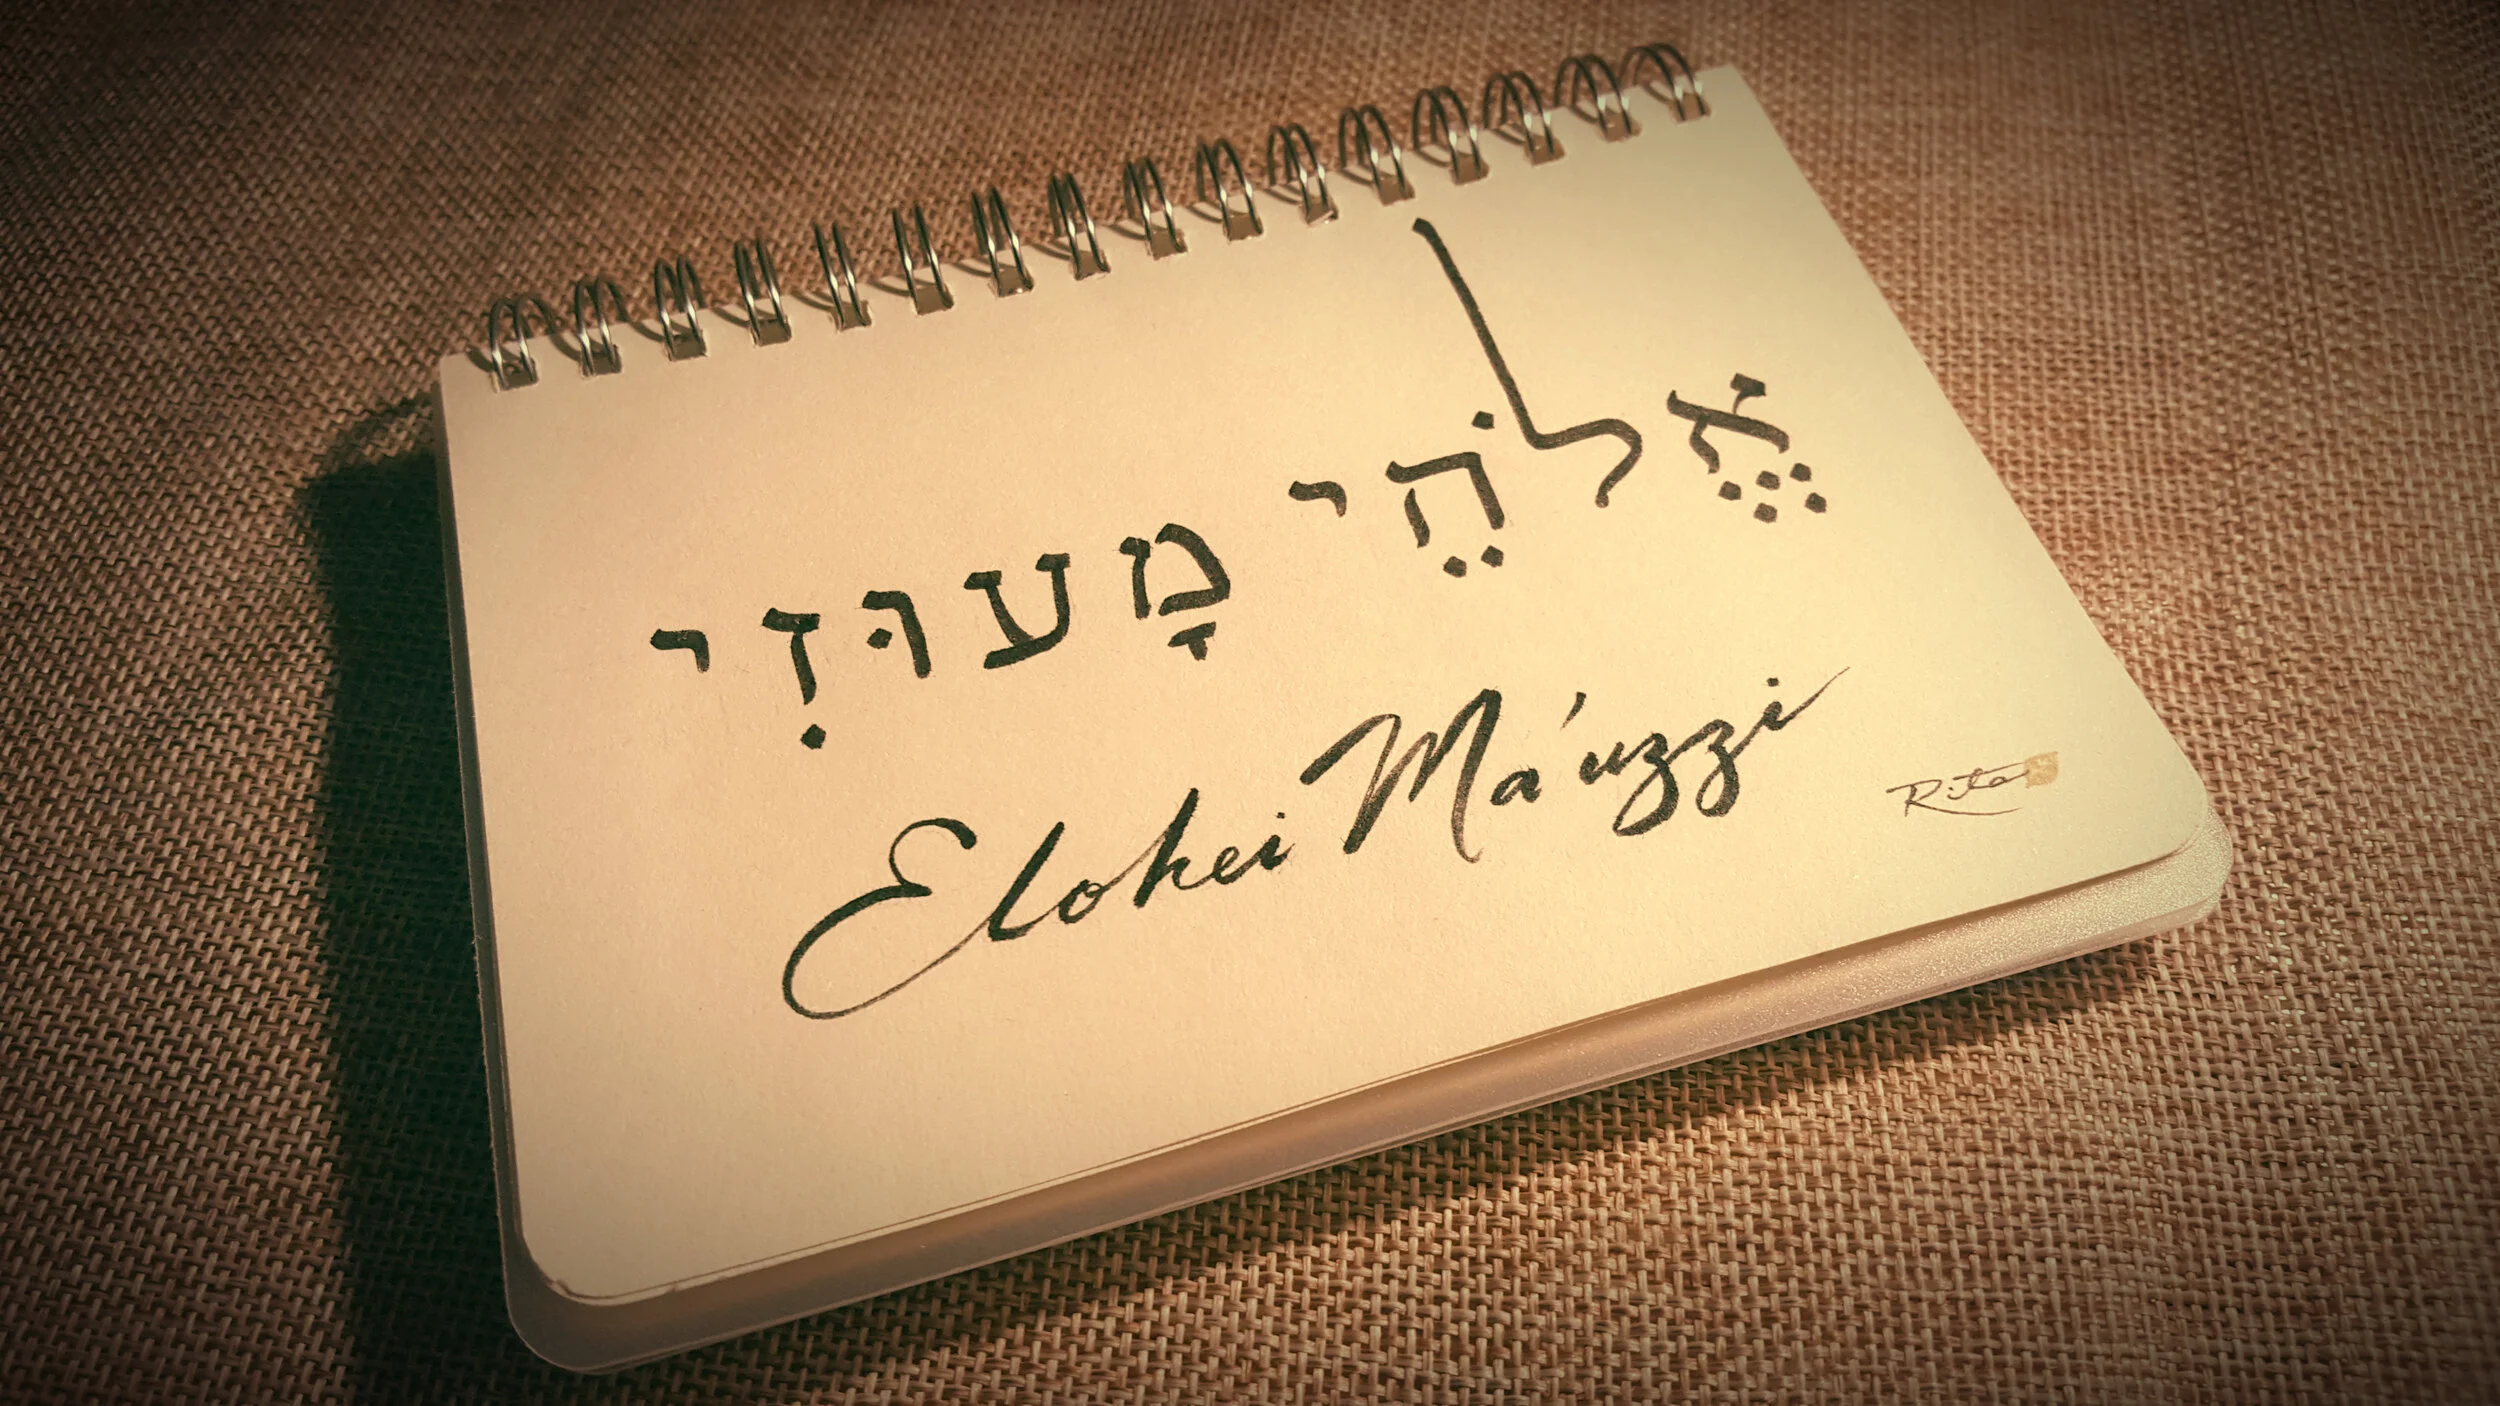 אֱלֹהֵי מָעוּזִי
Elohei Ma'uzzi
Rita